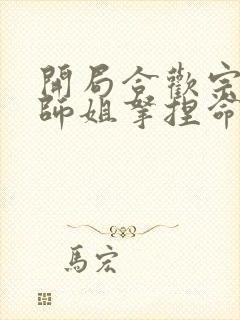 開局合歡宗
師姐拏捏命
馬宏